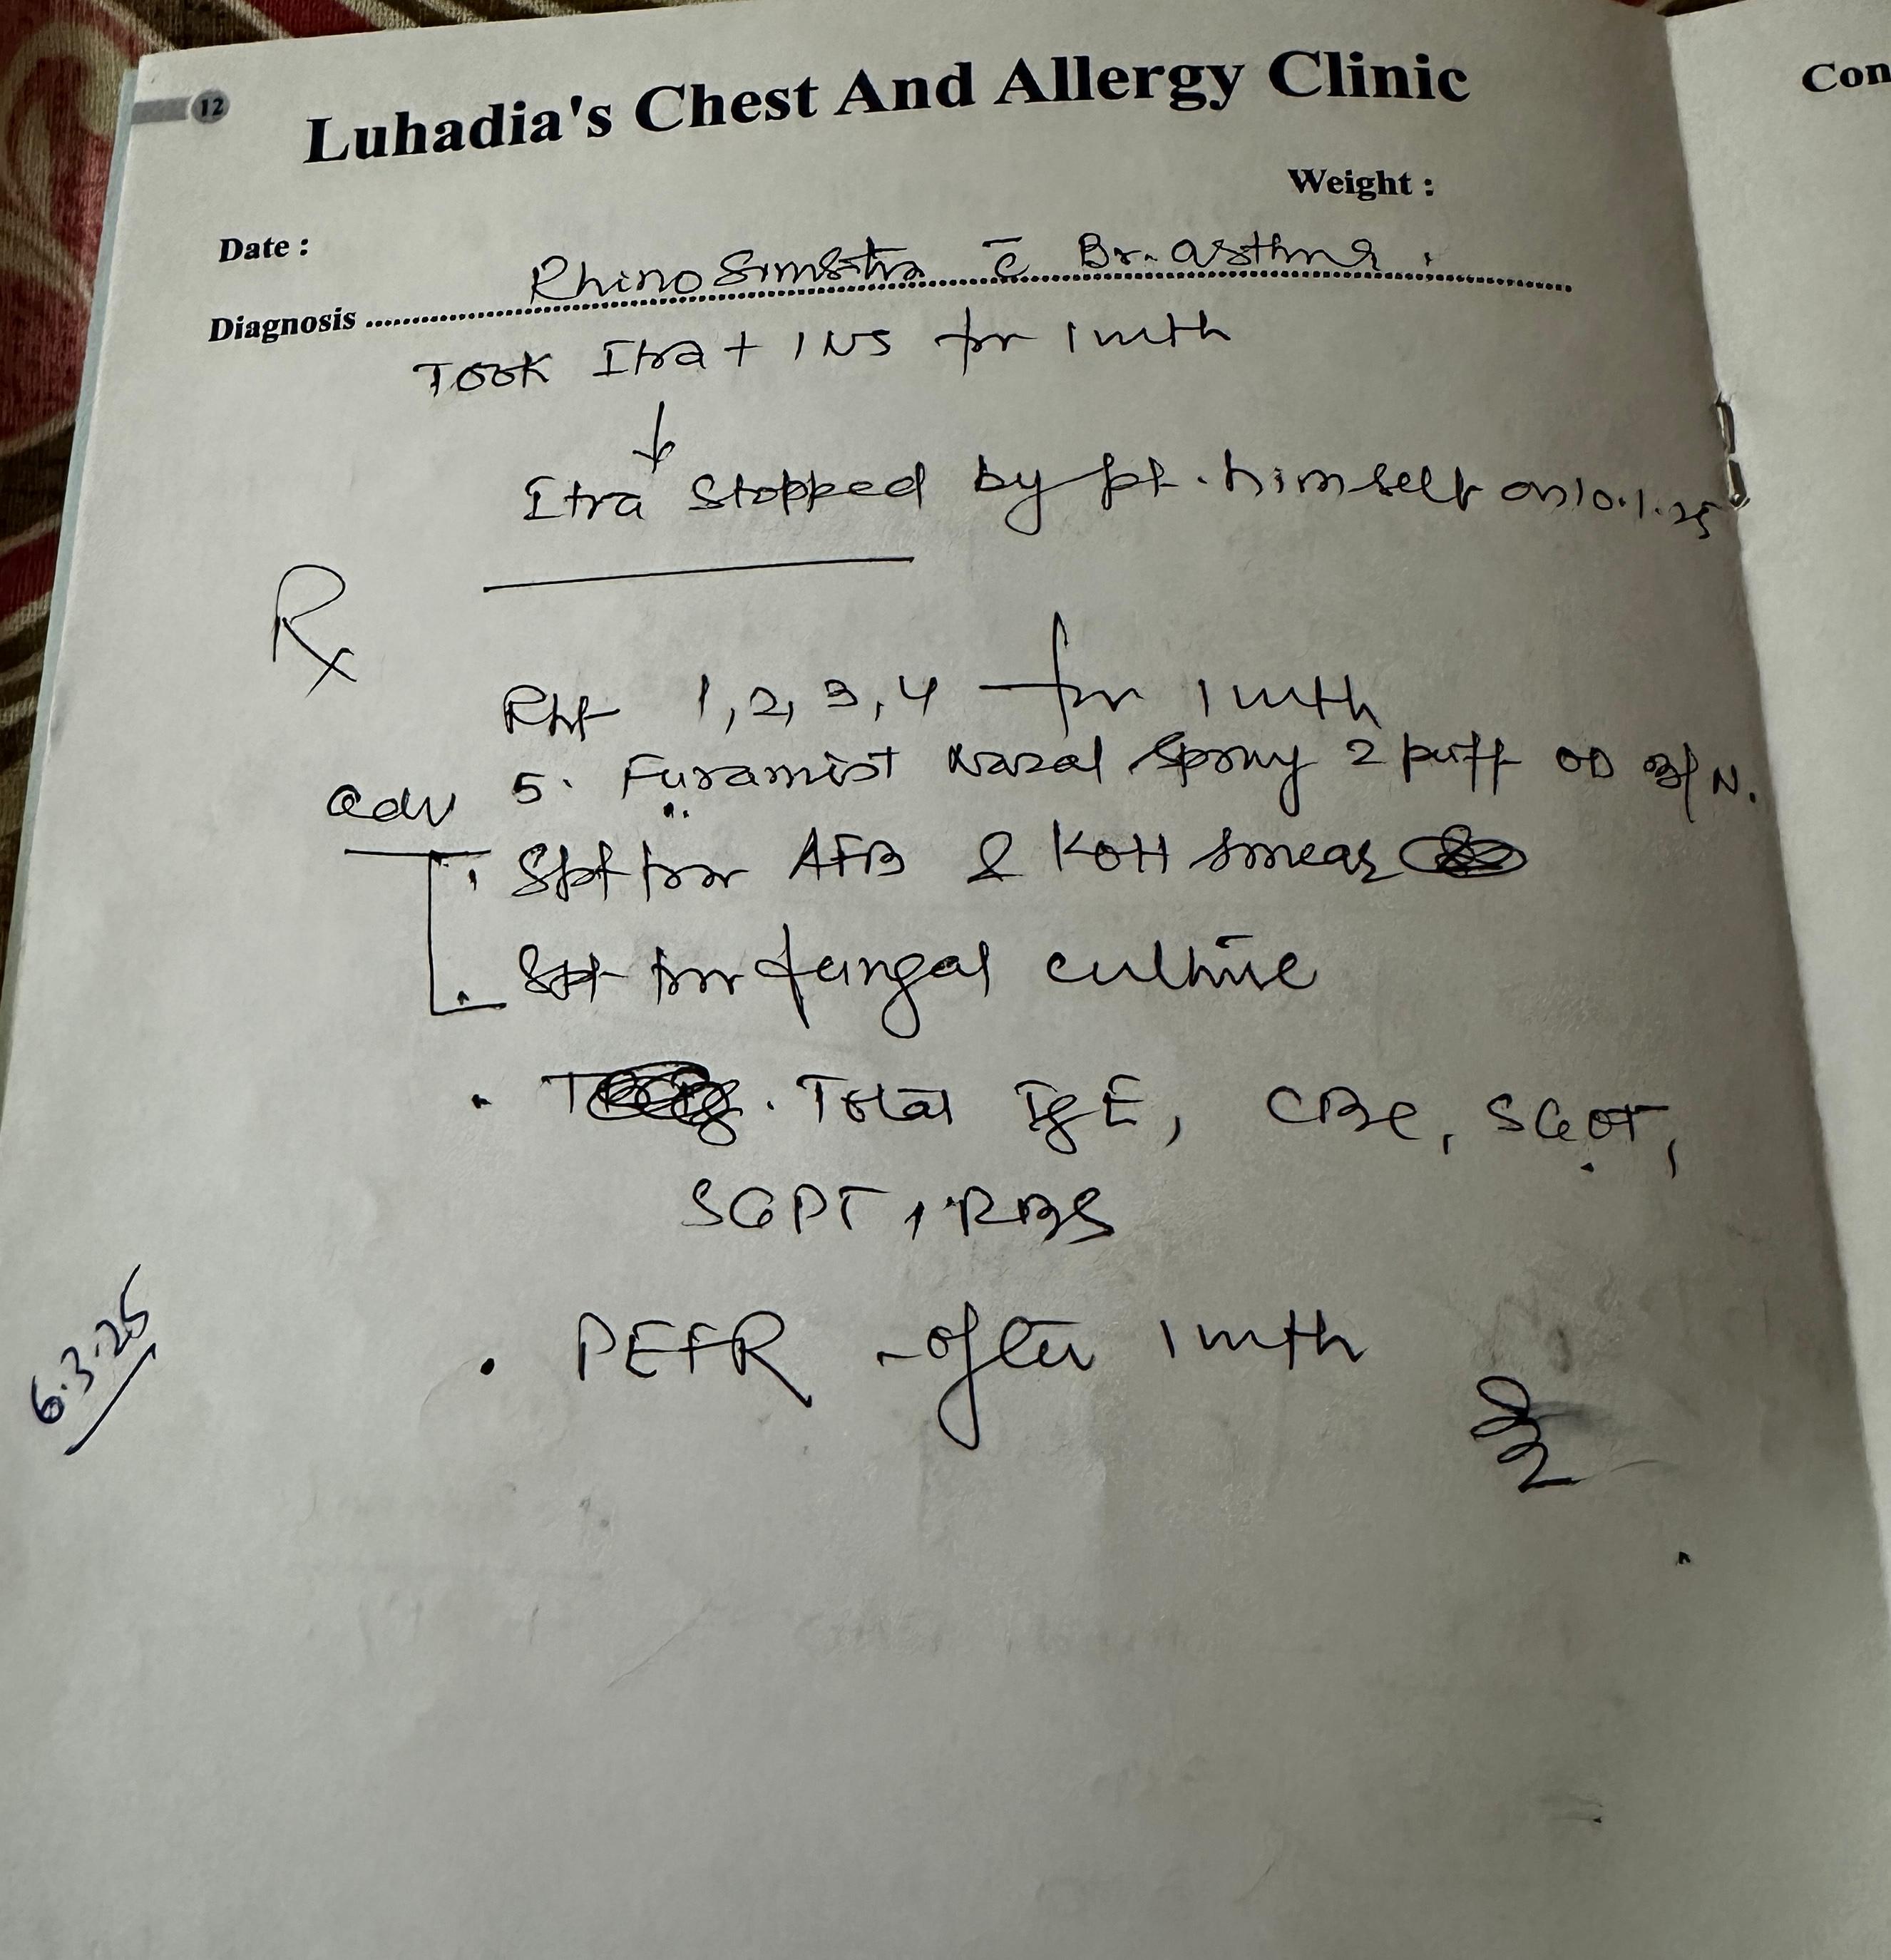 12
Luhadia's Chest And Allergy Clinic
Con
Weight :
Date :
Diagnosis Rhino c̄ Br. asthma.
Took Itra + INS for 1 mth
↓
Itra stopped by pt. himself on 10.1.25
Rx
Rpt 1, 2, 3, 4 — for 1 mth
5. Furamist Nazal Spray 2 puff OD B/N.
adv
Spt for AFB & KOH smear
Spt for fungal culture
• Total IgE, CBC, SGOT,
SGPT, RBS
• PEFR - after 1 mth
6.3.25